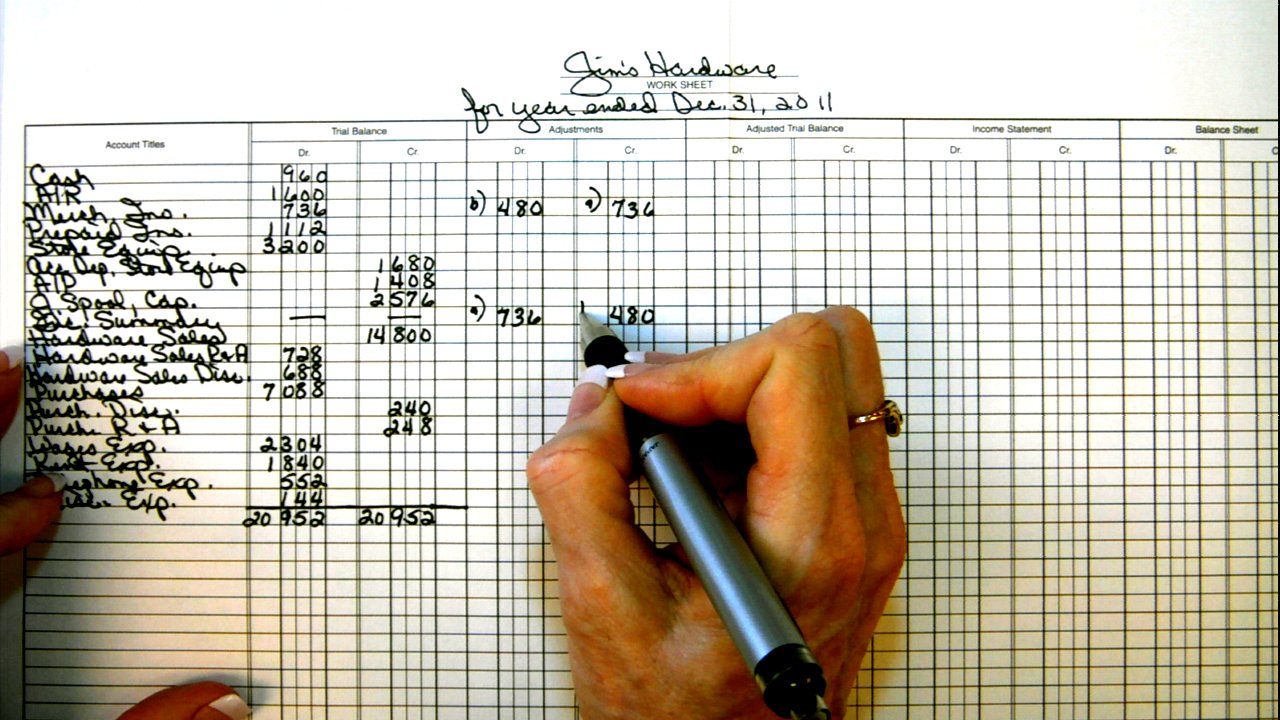 Jim's Hardware
WORK SHEET
for year ended Dec. 31, 2011
Account Titles Trial Balance Adjustments Adjusted Trial Balance Income Statement Balance Sheet
Dr. Cr. Dr. Cr. Dr. Cr. Dr. Cr. Dr.
Cash 960
A/R 1600
Merch. Ins. 736 b) 480 a) 736
Prepaid Ins. 1112
Store Equip. 3200
Acc Dep, Store Equip 1680
A/P 1408
O. Spool, Cap. 2576
Summary — — a) 736 480
Hardware Sales 14800
Hardware Sales R&A 728
Hardware Sales Disc. 688
Purchases 7088
Purch. Disc. 240
Purch. R & A 248
Wages Exp. 2304
Rent Exp. 1840
Exp. 552
Exp. 144
20952 20952